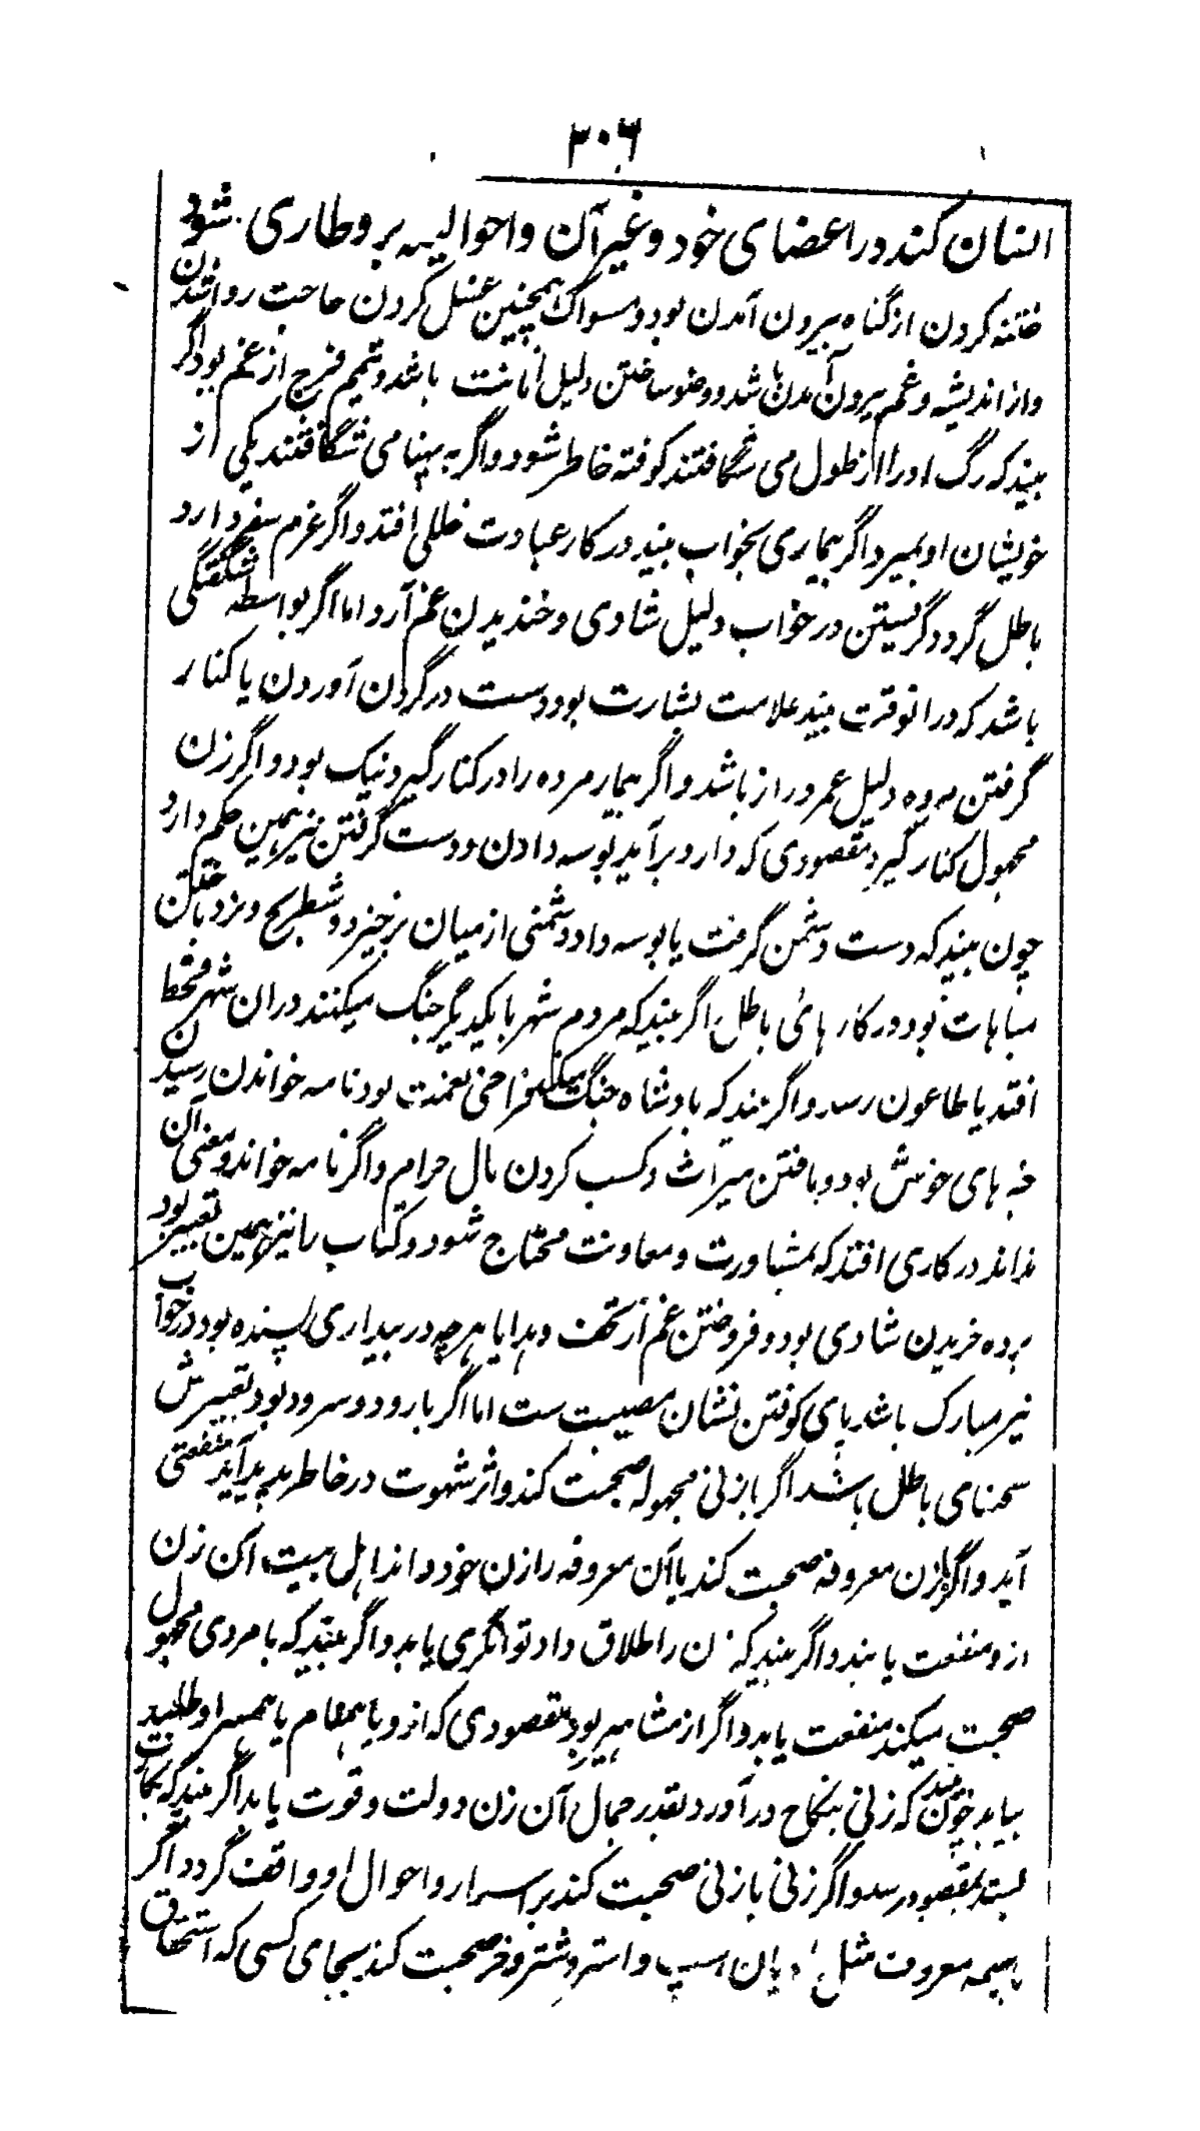 ۳۰۶
انسان کند در اعضای خود و غیر آن و احوالیکه برو طاری شود
ختنه کردن از گناه بیرون آمدن بود و مسواک همچنین غسل کردن حاجت روا شدن
و از اندیشه و غم بیرون آمدن باشد و وضو ساختن دلیل امانت باشد و تیمم فرج از غم بود اگر
بیند که رگ او را از طول می شگافتند کوفته خاطر شود و اگر به پهنا می شگافتند یکی از
خویشان او بمیرد اگر بیماری بخواب بیند در کار عبادت خللی افتد و اگر عزم سفر دارد
باطل گردد گریستن در خواب دلیل شادی و خندیدن غم آرد اما اگر بواسطه شگفتگی
باشد که در انوقت بیند علامت بشارت بود دست در گردن آوردن یا کنار
گرفتن مرده دلیل عمر دراز باشد و اگر بیمار مرده را در کنار گیرد نیک بود و اگر زن
مجهول کنار گیرد مقصودی که دارد برآید بوسه دادن و دست گرفتن نیز همین حکم دارد
چون بیند که دست دشمن گرفت یا بوسه داد دشمنی از میان برخیزد و شطرنج و نرد باختن
مباهات بود در کار هائی باطل اگر بیند که مردم شهر با یکدیگر جنگ میکنند دران شهر قحط
افتد یا طاعون رسد و اگر بیند که بادشاه جنگ میکند فراخی نعمت بود نامه خواندن رسیدن
خبر های خوش بود و یافتن میراث و کسب کردن مال حرام و اگر نامه خواند و معنی آن
نداند در کاری افتد که بمشاورت و معاونت محتاج شود و کتاب را نیز همین تعبیر بود
برده خریدن شادی بود و فروختن غم از تحف و هدایا هر چه در بیداری پسنده بود در خواب
نیز مبارک باشد پای کوفتن نشان مصیبت ست اما اگر با رود و سرود بود تعبیرش
سخنای باطل باشد اگر با زنی مجهوله صحبت کند و اثر شهوت در خاطر پدید آید منفعتی
آید و اگر با زن معروفه صحبت کند یا آن معروفه را زن خود داند اهل بیت آن زن
ازو منفعت یابند و اگر بیند که زن را طلاق داد توانگری یابد و اگر بیند که با مردی مجهول
صحبت میکند منفعت یابد و اگر از مشاهیر بود مقصودی که ازو یا همنام یا همسر او طلبد
بیابد چون بیند که زنی بنکاح درآورد بقدر جمال آن زن دولت و قوت یابد اگر بیند که بکارت
بستد بمقصود رسد و اگر زنی با زنی صحبت کند بر اسرار و احوال او واقف گردد اگر
بهیمه معروف مثل مادیان اسپ و استر و شتر و خر صحبت کند بجای کسی که استحقاق